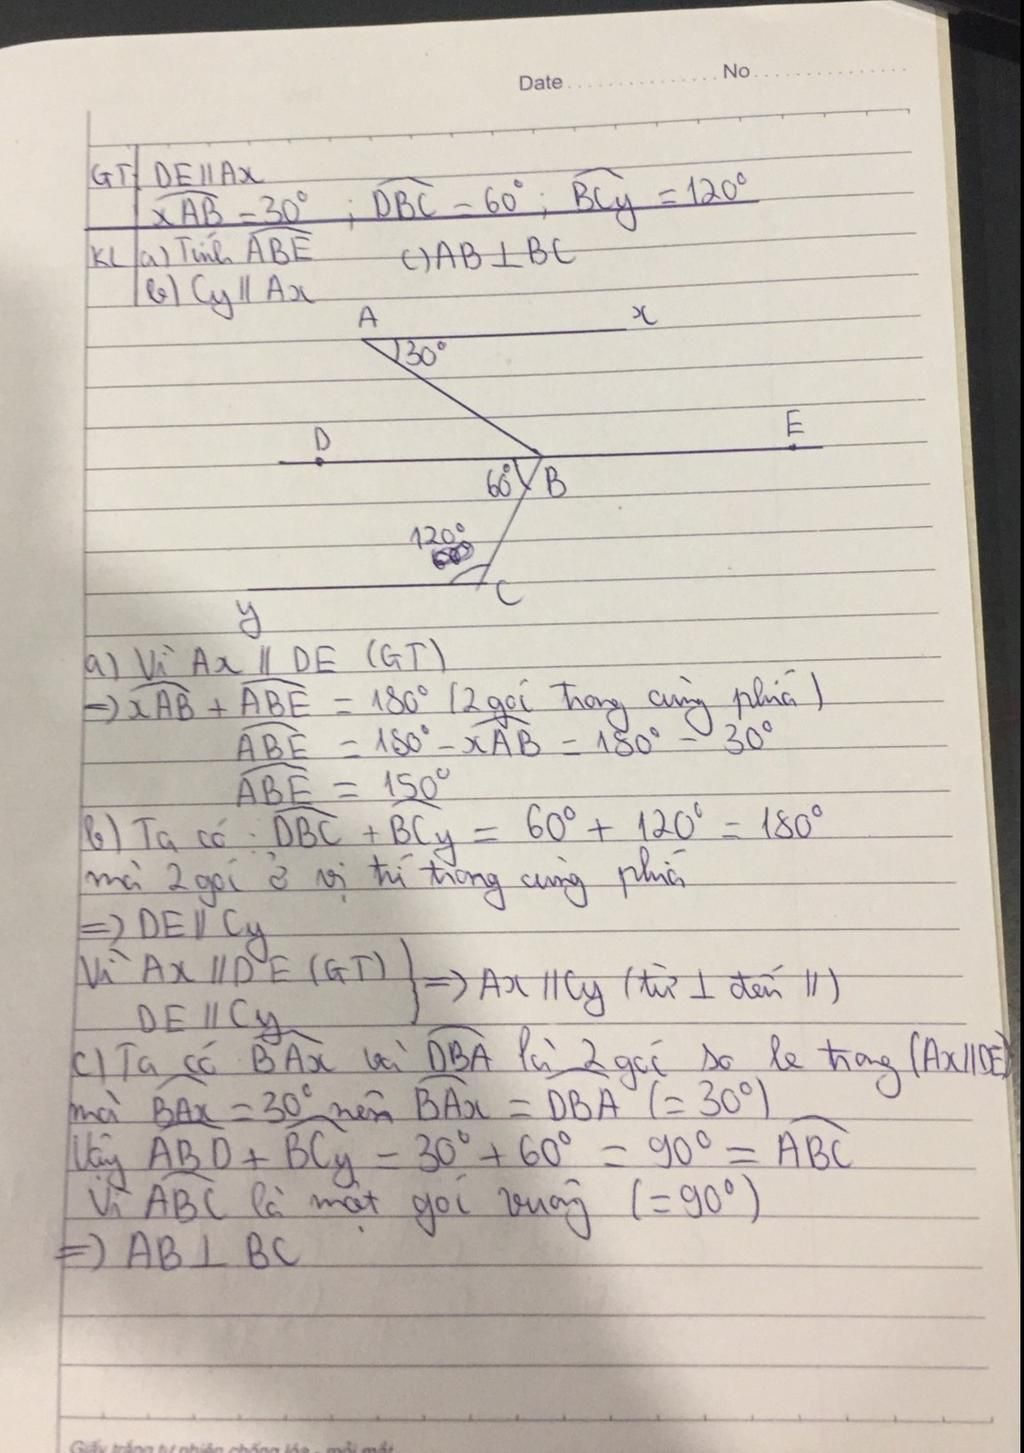 Date No
GT DE // Ax
xAB = 30° ; DBC = 60° ; BCy = 120°
KL a) Tính ABE c) AB ⊥ BC
b) Cy // Ax
A x
30°
D E
60° B
120°
C
y
a) Vì Ax // DE (GT)
=> xAB + ABE = 180° (2 góc trong cùng phía)
ABE = 180° - xAB = 180° - 30°
ABE = 150°
b) Ta có : DBC + BCy = 60° + 120° = 180°
mà 2 góc ở vị trí trong cùng phía
=> DE // Cy
Vì Ax // DE (GT) } => Ax // Cy (từ ⊥ đến //)
DE // Cy
c) Ta có BAx và DBA là 2 góc so le trong (Ax // DE)
mà BAx = 30° nên BAx = DBA (= 30°)
Vậy ABD + BCy = 30° + 60° = 90° = ABC
Vì ABC là một góc vuông (= 90°)
=> AB ⊥ BC
Giấy trắng tự nhiên chống lóa - mỏi mắt